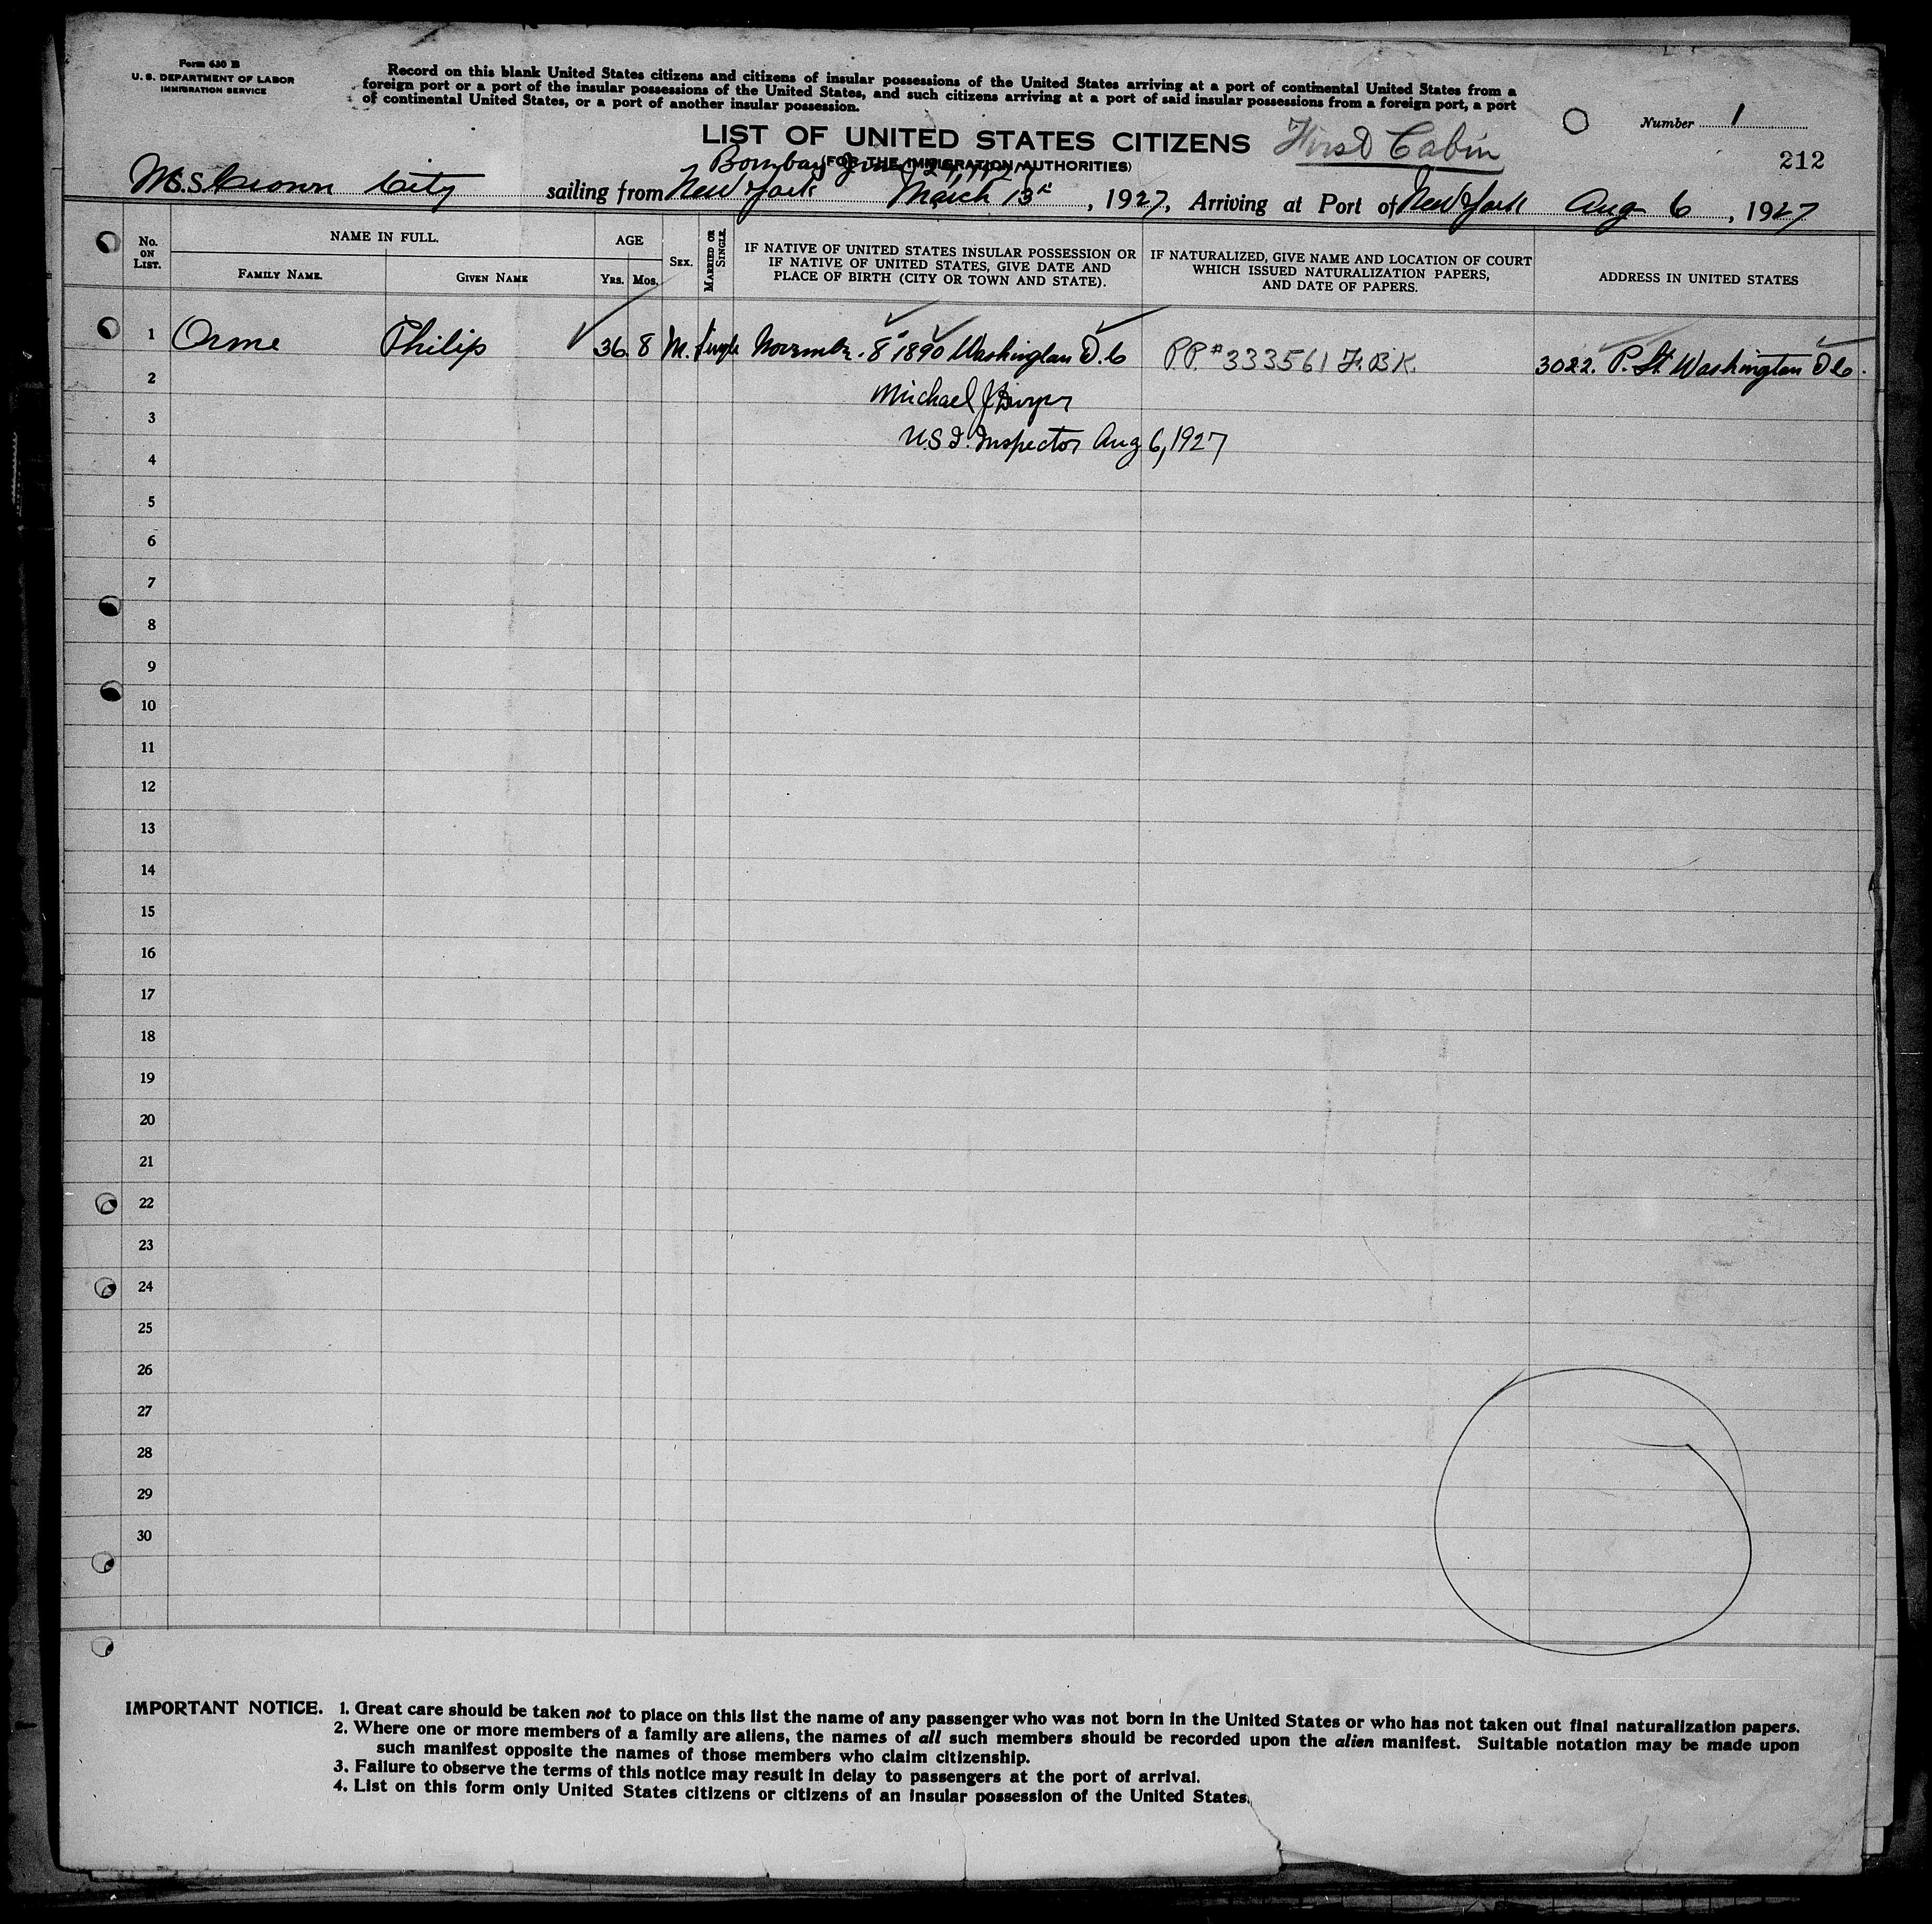 Form 630 B
U. S. DEPARTMENT OF LABOR
IMMIGRATION SERVICE
Record on this blank United States citizens and citizens of insular possessions of the United States arriving at a port of continental United States from a
foreign port or a port of the insular possessions of the United States, and such citizens arriving at a port of said insular possessions from a foreign port, a port
of continental United States, or a port of another insular possession.
Number 1
LIST OF UNITED STATES CITIZENS First Cabin
212
(FOR THE IMMIGRATION AUTHORITIES)
Bombay June 27, 1927
M.S. Crown City sailing from New York March 13th, 1927, Arriving at Port of New York Aug 6, 1927
No. ON LIST.
NAME IN FULL.
FAMILY NAME.
GIVEN NAME
AGE
YRS. MOS.
SEX.
MARRIED OR SINGLE.
IF NATIVE OF UNITED STATES INSULAR POSSESSION OR
IF NATIVE OF UNITED STATES, GIVE DATE AND
PLACE OF BIRTH (CITY OR TOWN AND STATE).
IF NATURALIZED, GIVE NAME AND LOCATION OF COURT
WHICH ISSUED NATURALIZATION PAPERS,
AND DATE OF PAPERS.
ADDRESS IN UNITED STATES
1 Orme Philip 36 8 M. Single November 8th 1890 Washington D.C PP.#333561 F.BK. 3022. P. St. Washington D C.
2 Michael J
3 U.S.I. Inspector Aug 6, 1927
4
5
6
7
8
9
10
11
12
13
14
15
16
17
18
19
20
21
22
23
24
25
26
27
28
29
30
IMPORTANT NOTICE. 1. Great care should be taken not to place on this list the name of any passenger who was not born in the United States or who has not taken out final naturalization papers.
2. Where one or more members of a family are aliens, the names of all such members should be recorded upon the alien manifest. Suitable notation may be made upon
such manifest opposite the names of those members who claim citizenship.
3. Failure to observe the terms of this notice may result in delay to passengers at the port of arrival.
4. List on this form only United States citizens or citizens of an insular possession of the United States.